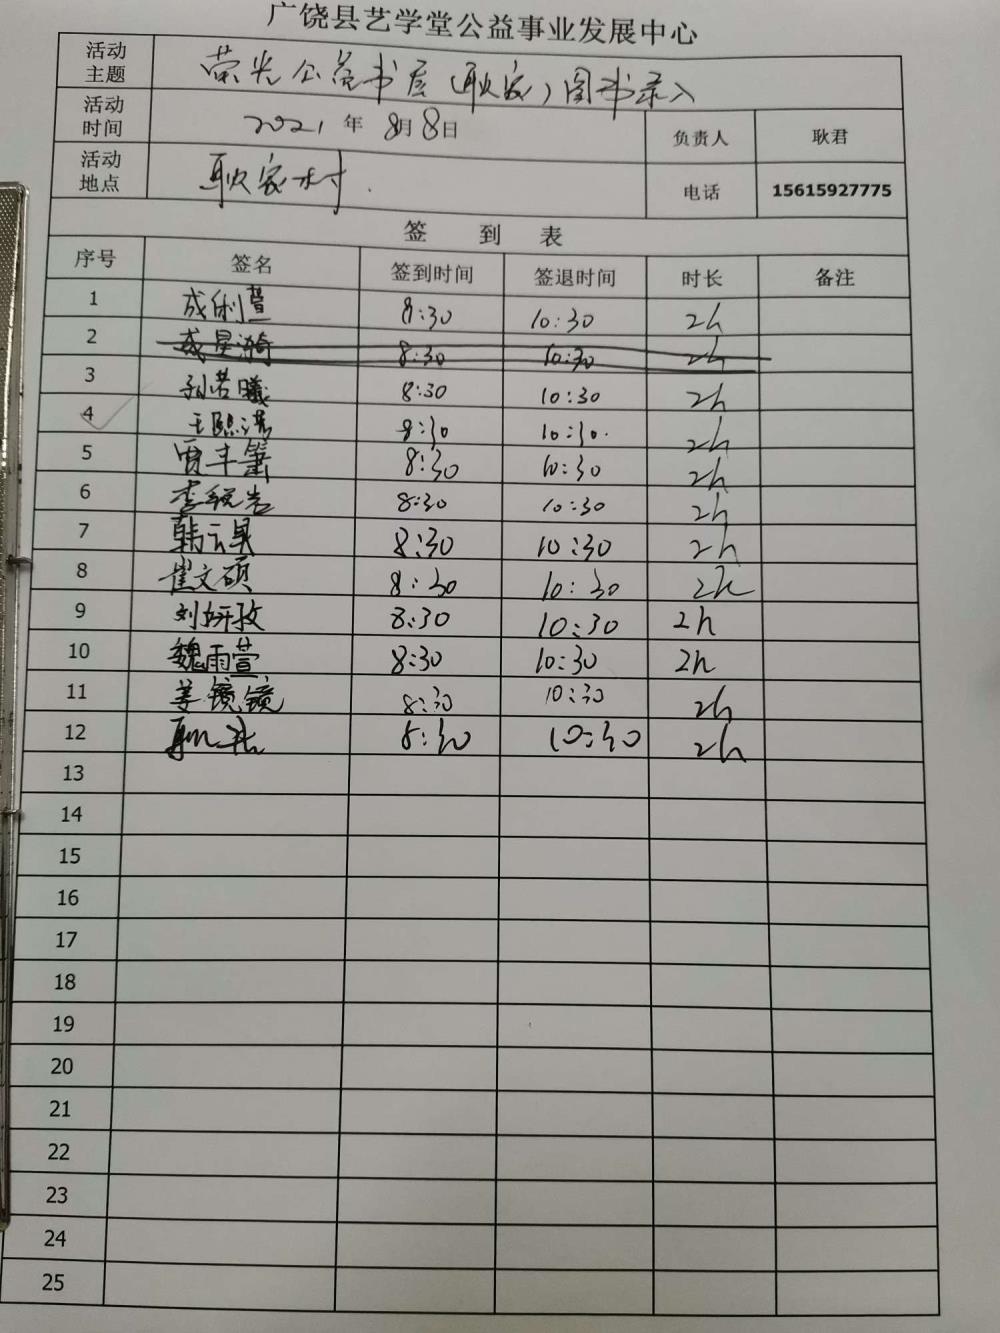 广饶县艺学堂公益事业发展中心
活动主题 荣光公益书屋（耿家）图书录入
活动时间 2021年8月8日 负责人 耿君
活动地点 耿家村. 电话 15615927775
签到表
序号 签名 签到时间 签退时间 时长 备注
1 成俐萱 8:30 10:30 2h
2 星漪 8:30 10:30 2h
3 孙若曦 8:30 10:30 2h
4 王熙 8:30 10:30. 2h
5 贾丰 8:30 10:30 2h
6 李 8:30 10:30 2h
7 韩云昊 8:30 10:30 2h
8 崔文硕 8:30 10:30 2h
9 刘妍孜 8:30 10:30 2h
10 魏雨萱 8:30 10:30 2h
11 姜镜镜 8:30 10:30 2h
12 耿 8:30 10:30 2h
13
14
15
16
17
18
19
20
21
22
23
24
25